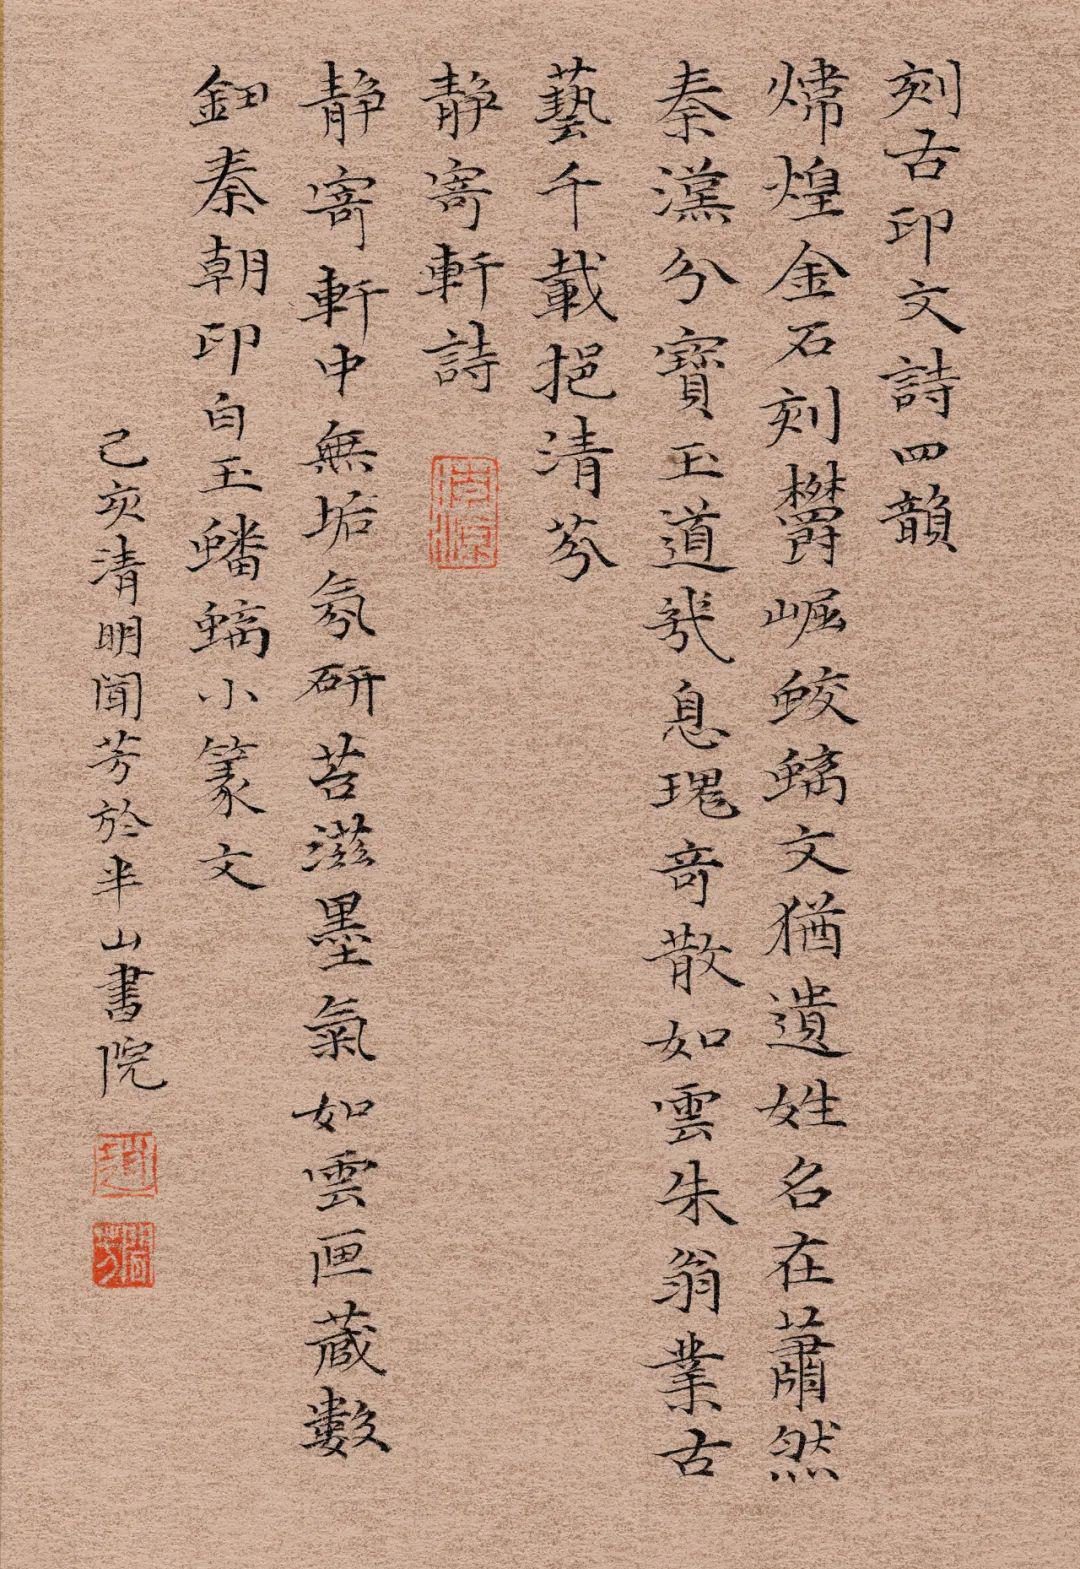 刻古印文詩四韻
煒煌金石刻鬱崛蛟螭文猶遺姓名在蕭然
秦漢分寶玉道息瑰奇散如雲朱翁業古
藝千載挹清芬
静寄軒詩
静寄軒中無垢氛研苔滋墨氣如雲匣藏數
鈕秦朝印白玉蟠螭小篆文
己亥清明聞芳於半山書院
趙
聞芳